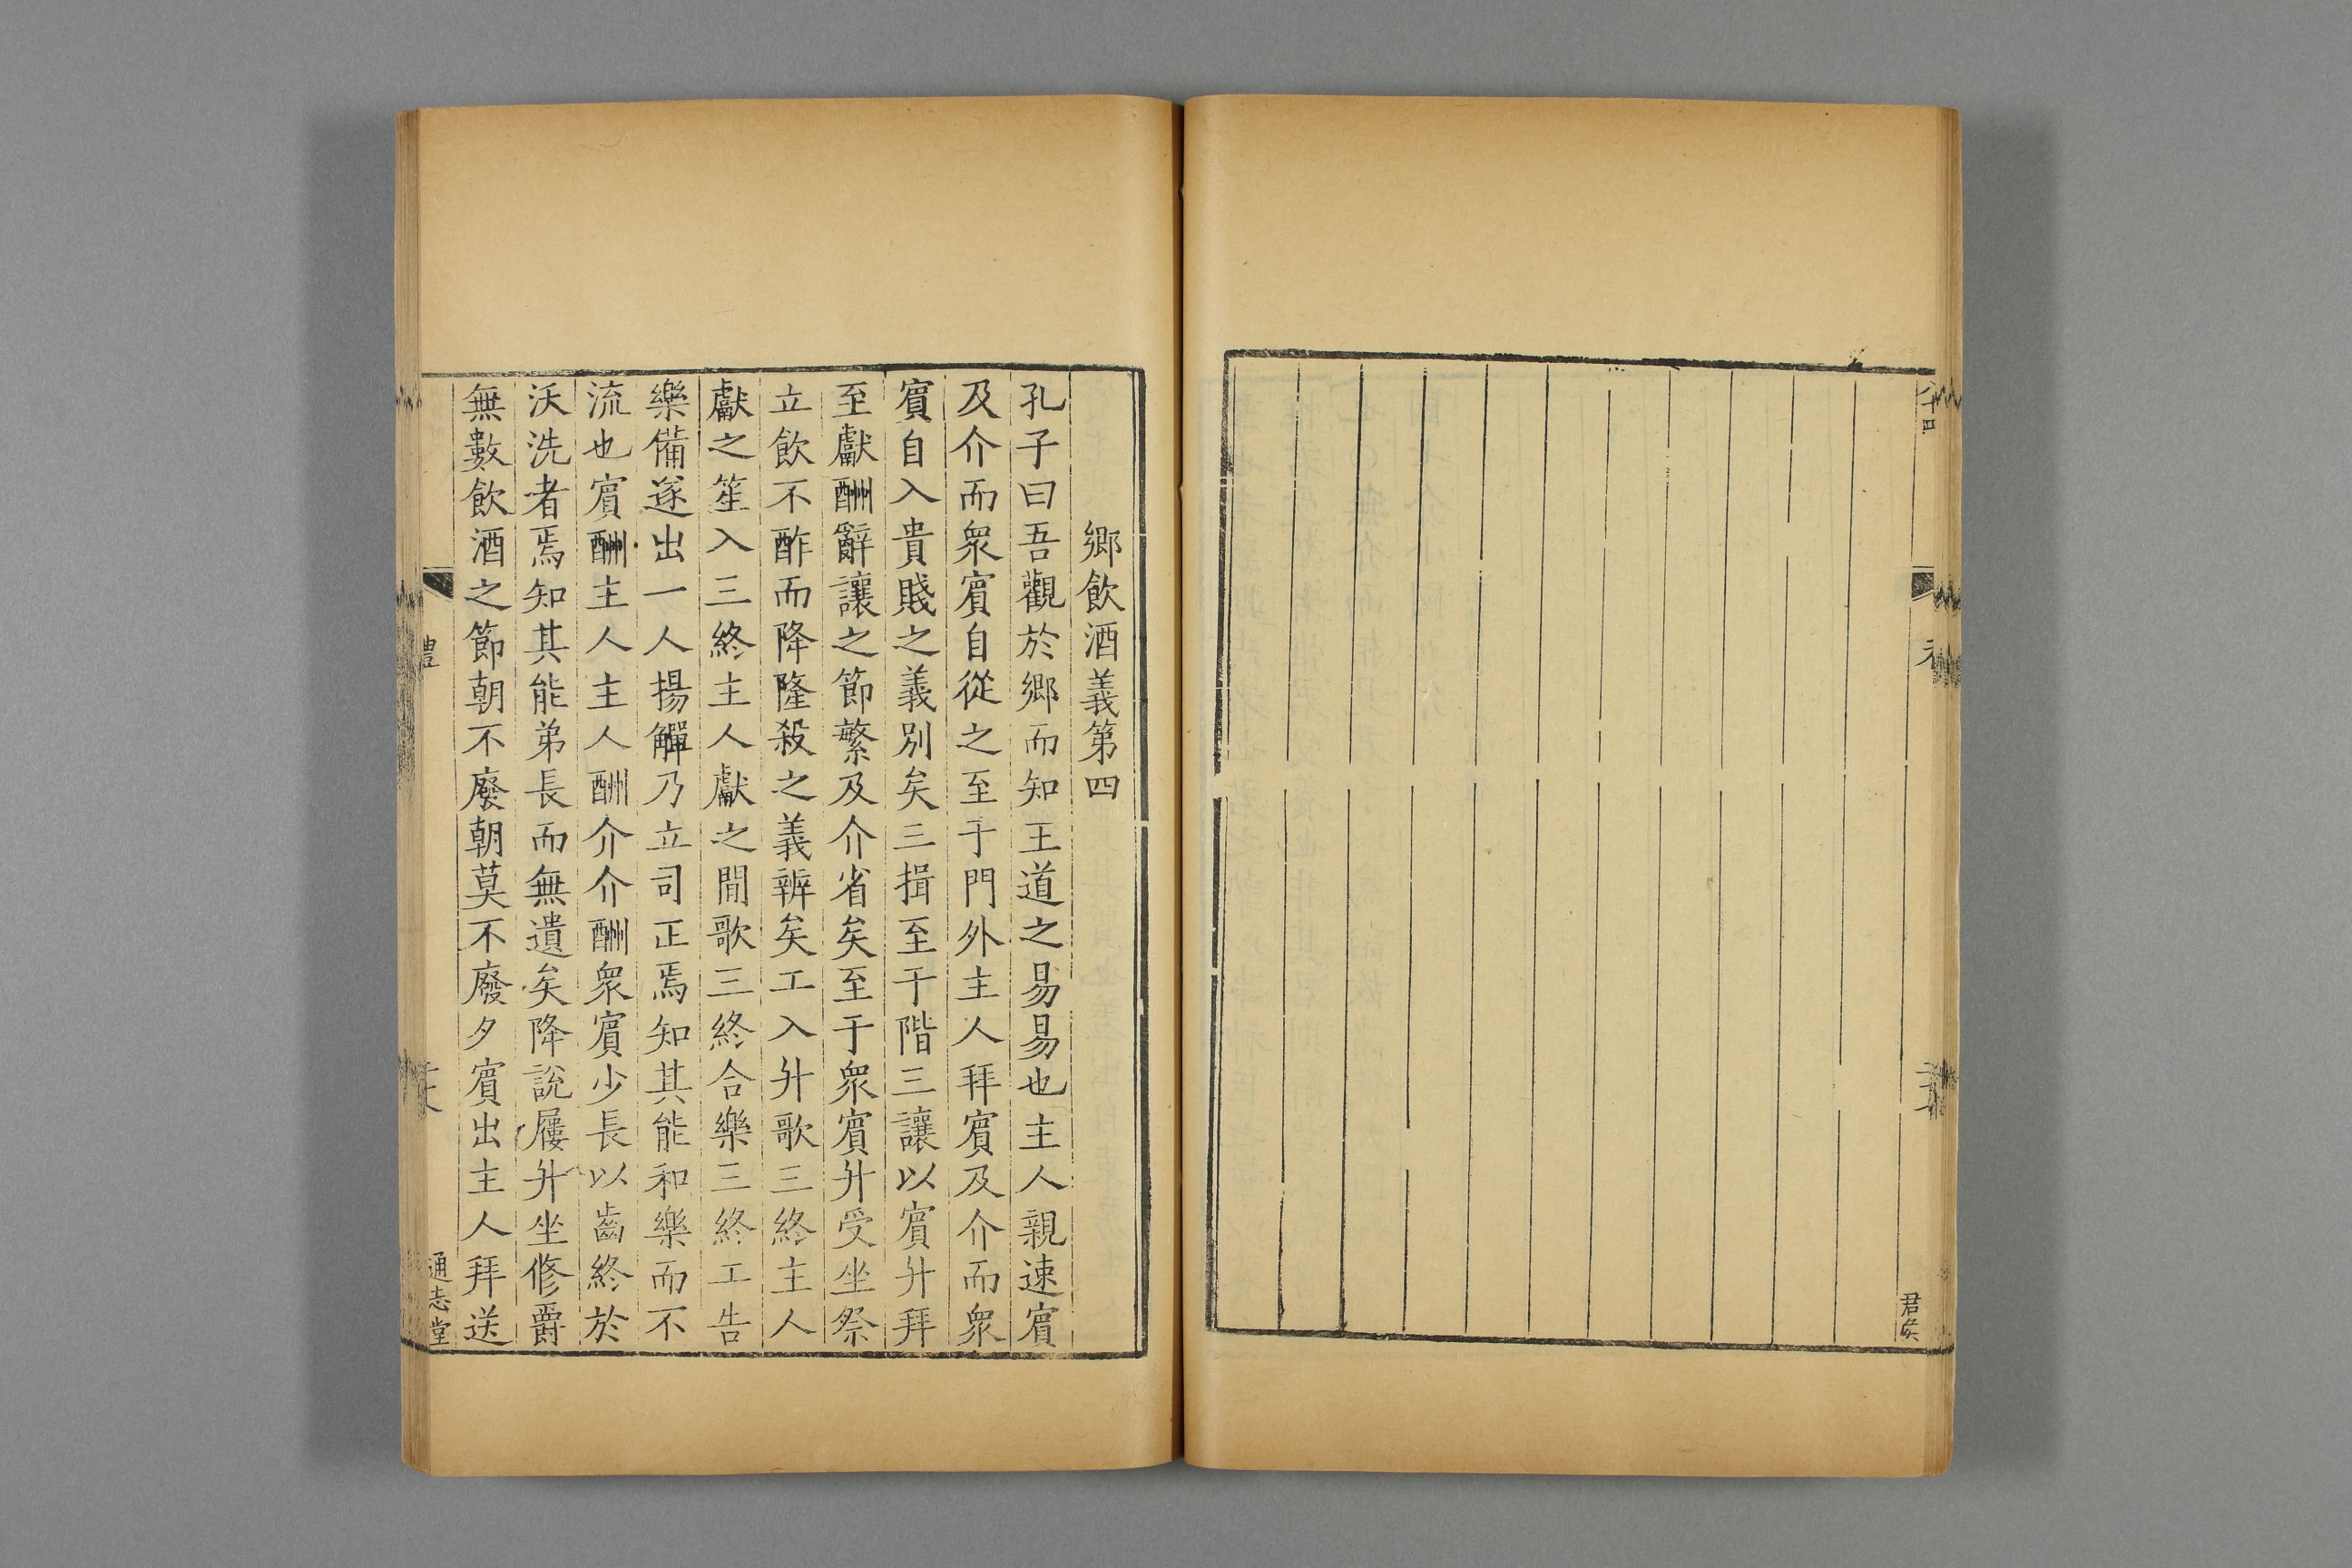 君矦
鄉飲酒義第四
孔子曰吾觀於鄉而知王道之易易也主人親速賓
及介而衆賓自從之至于門外主人拜賓及介而衆
賓自入貴賤之義別矣三揖至于階三讓以賓升拜
至獻酬辭讓之節繁及介省矣至于衆賓升受坐祭
立飲不酢而降隆殺之義辨矣工入升歌三終主人
獻之笙入三終主人獻之閒歌三終合樂三終工告
樂備遂出一人揚觶乃立司正焉知其能和樂而不
流也賓酬主人主人酬介介酬衆賓少長以齒終於
沃洗者焉知其能弟長而無遺矣降說屨升坐修爵
無數飲酒之節朝不廢朝莫不廢夕賓出主人拜送
通志堂